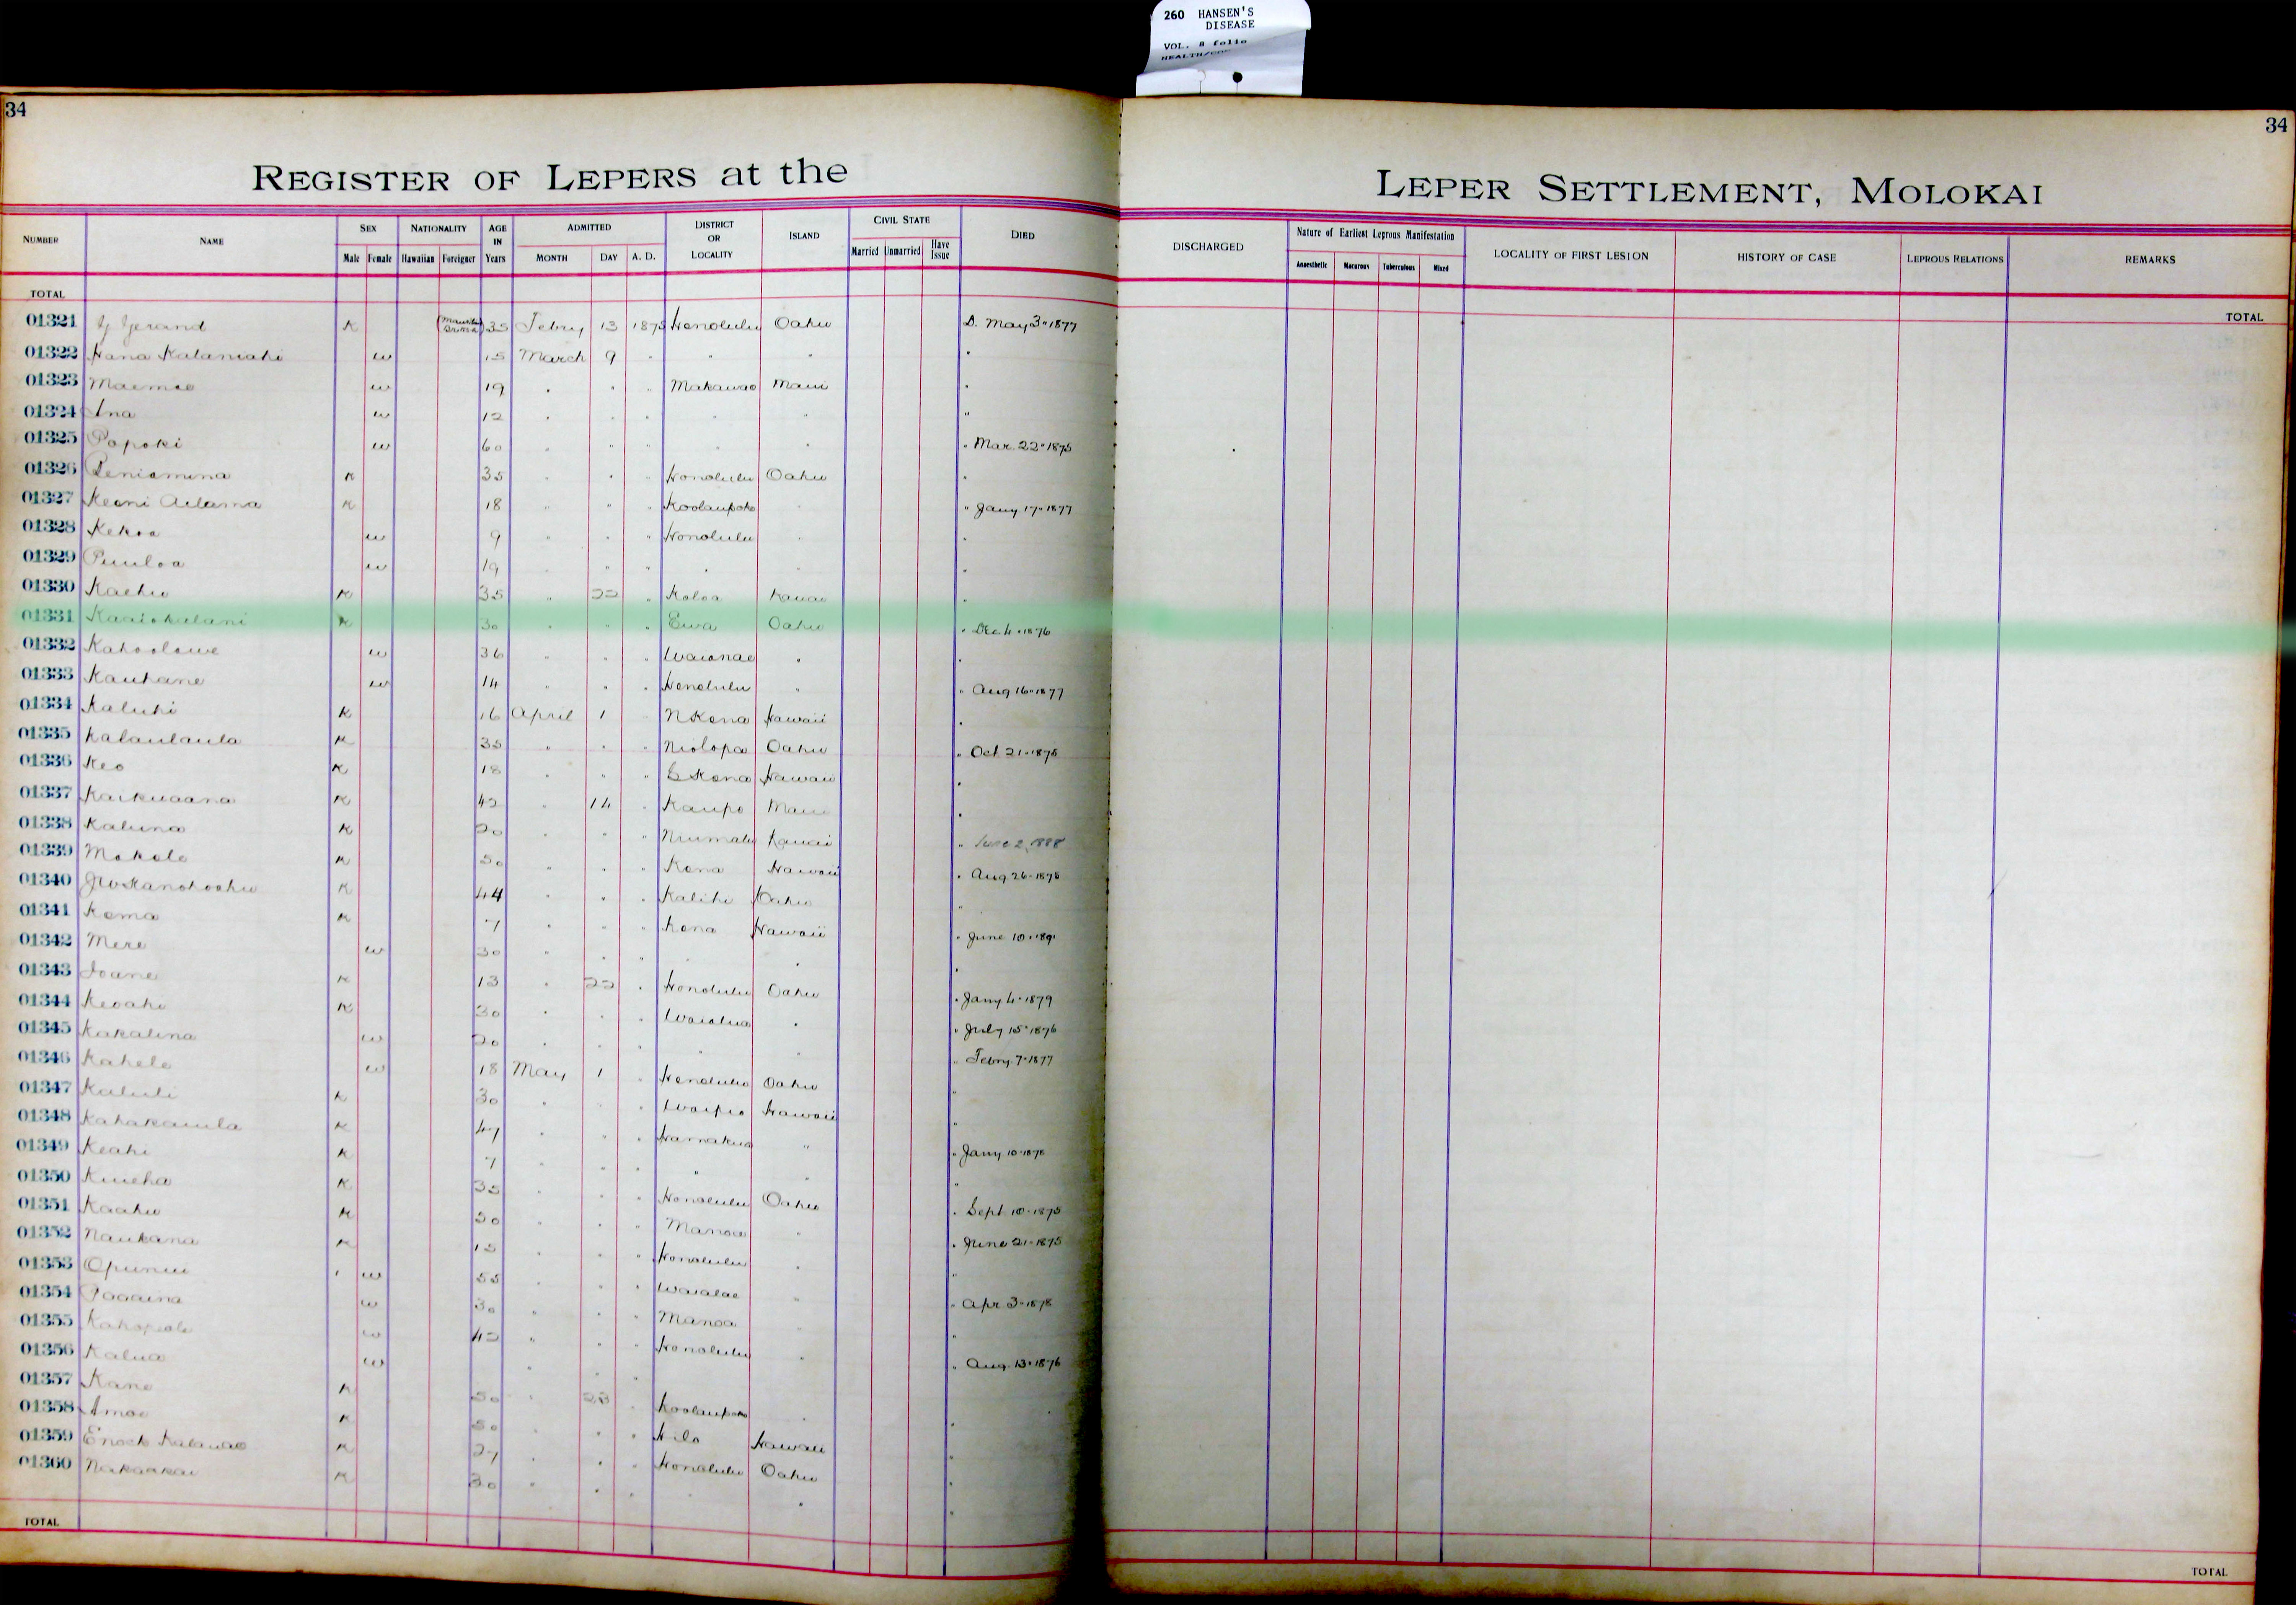 260 HANSEN'S
DISEASE
VOL. 8 folio
34
34
REGISTER OF LEPERS at the
LEPER SETTLEMENT, MOLOKAI
NUMBER NAME SEX NATIONALITY AGE IN Years ADMITTED DISTRICT OR LOCALITY ISLAND CIVIL STATE DIED
Male Female Hawaiian Foreigner MONTH DAY A. D. Married Unmarried Have Issue
DISCHARGED Nature of Earliest Leprous Manifestation LOCALITY OF FIRST LESION HISTORY OF CASE LEPROUS RELATIONS REMARKS
Anaesthetic Macurous Tuberculous Mixed
TOTAL
TOTAL
01321 Gerand K 35 Febry 13 1875 Honolulu Oahu D. May 3" 1877
01322 Hana Kalaniahi w 15 March 9 " " "
01323 Maemae w 19 " " " Makawao Maui "
01324 Ana w 12 " " " " " "
01325 Popoki w 60 " " " " " " Mar. 22" 1875
01326 Peniamina K 35 " " " Honolulu Oahu "
01327 Keoni Adama K 18 " " " Koolaupoko " " Jany 17" 1877
01328 Kekoa w 9 " " " Honolulu " "
01329 Puuloa w 19 " " " " " "
01330 Kaehu K 35 " 22 " Koloa Kauai "
01331 Kaaiokalani K 30 " " " Ewa Oahu " Dec 4" 1876
01332 Kahoolawe w 36 " " " Waianae " "
01333 Kauhane w 14 " " " Honolulu " " Aug 16" 1877
01334 Kaluhi K 16 April 1 " N Kona Hawaii "
01335 Kalaulaula K 35 " " " Niolopa Oahu " Oct 21" 1875
01336 Keo K 18 " " " S Kona Hawaii "
01337 Kaikuaana K 42 " 14 " Kaupo Maui "
01338 Kaluna K 20 " " " Niumalu Kauai " June 2, 1888
01339 Mokolo K 50 " " " Kona Hawaii " Aug 26" 1878
01340 K 44 " " " Kalihi Oahu "
01341 Kema K 7 " " " Kona Hawaii " June 10" 1891
01342 Mere w 30 " " " " " "
01343 Ioane K 13 " 22 " Honolulu Oahu " Jany 4" 1879
01344 Keoahi K 30 " " " Waialua " " July 15" 1876
01345 Kakalina w 20 " " " " " " Febry. 7" 1877
01346 Kahele w 18 May 1 " Honolulu Oahu "
01347 Kaluli K 30 " " " Waipio Hawaii "
01348 Kahakauila K 47 " " " Hamakua " " Jany 10" 1878
01349 Keahi K 7 " " " " " "
01350 Kuieha K 35 " " " Honolulu Oahu " Sept 10" 1875
01351 Kaahu K 50 " " " Manoa " " June 21" 1875
01352 Naukana K 15 " " " Honolulu " "
01353 Opunui w 55 " " " Waialae " " Apr 3" 1878
01354 Paaaina w 30 " " " Manoa " "
01355 w 42 " " " Honolulu " " Aug. 13" 1876
01356 Kalua w " " "
01357 Kane K 50 " 23 " Koolaupoko " "
01358 Amoe K 50 " " " Hilo Hawaii "
01359 Enock Kalauao K 27 " " " Honolulu Oahu "
01360 Nakaakai K 30 " " " " " "
TOTAL
TOTAL